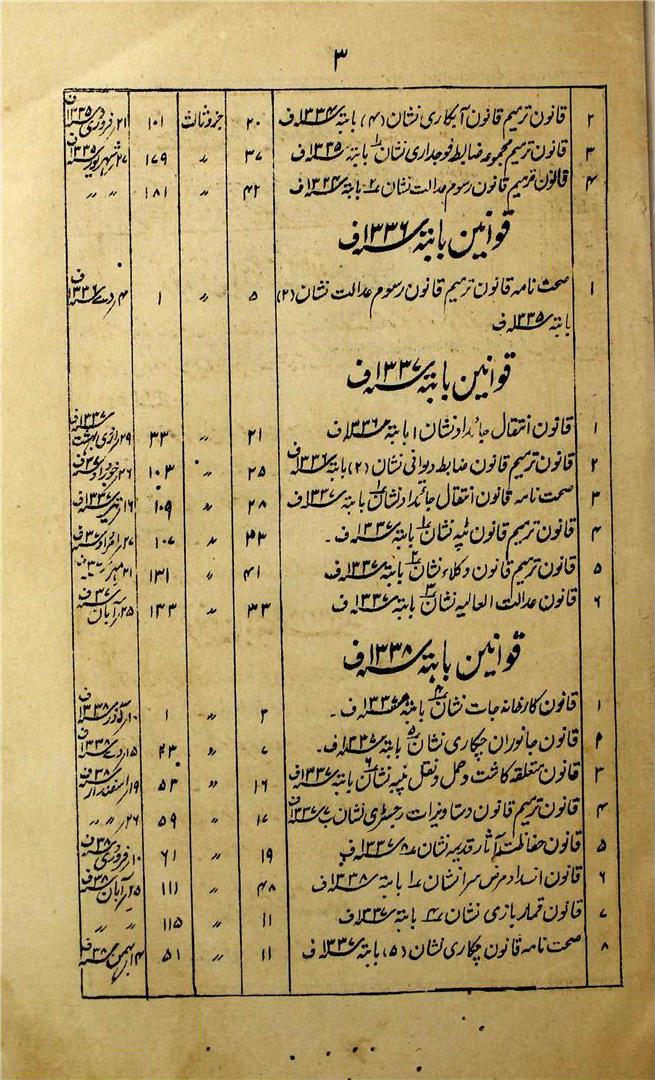 ۳
۲ قانون ترمیم قانون آبکاری نشان (۴) بابتہ ۱۳۳۴ف ۲۰ جزو ثالث ۱۰۱ ۲۱ فروردی ۱۳۳۵ف
۳ قانون ترمیم مجموعہ ضابطہ فوجداری نشان ۱ بابتہ ۱۳۳۵ف ۳۷ 〃 ۱۷۹ ۲۷ شہریور ۱۳۳۵ف
۴ قانون ترمیم قانون رسوم عدالت نشان ۲ بابتہ ۱۳۳۴ف ۴۲ 〃 ۱۸۱ 〃 〃
قوانین بابتہ ۱۳۳۶ف
۱ صحت نامہ قانون ترمیم قانون رسوم عدالت نشان (۲) ۵ 〃 ۱ ۴ دے ۱۳۳۶ف
بابتہ ۱۳۳۵ف
قوانین بابتہ ۱۳۳۷ف
۱ قانون انتقال جائداد نشان ۱ بابتہ ۱۳۳۶ف ۲۱ 〃 ۳۳ ۲۹ اردی بہشت ۱۳۳۷ف
۲ قانون ترمیم قانون ضابطہ دیوانی نشان (۲) بابتہ ۱۳۳۶ف ۲۵ 〃 ۱۰۳ ۲۶ خورداد ۳۷ف
۳ صحت نامہ قانون انتقال جائداد نشان ۱ بابتہ ۱۳۳۷ف ۲۸ 〃 ۱۰۹ ۱۶ تیر ۱۳۳۷ف
۴ قانون ترمیم قانون ٹپہ نشان ۱ بابتہ ۱۳۳۷ف۔ ۳۳ 〃 ۱۰۷ ۲۷ امرداد ۳۷ف
۵ قانون ترمیم قانون وکلاء نشان ۲ بابتہ ۱۳۳۷ف ۴۱ 〃 ۱۳۱ ۳۱ مہر ۳۷ف
۶ قانون عدالت العالیہ نشان ۳ بابتہ ۱۳۳۷ف ۳۳ 〃 ۱۳۳ ۲۵ آبان ۳۷ف
قوانین بابتہ ۱۳۳۸ف
۱ قانون کارخانہ جات نشان ۴ بابتہ ۱۳۳۷ف۔ ۳ 〃 ۱ ۱۰ آذر ۱۳۳۸ف
۲ قانون جانوران چکاری نشان ۵ بابتہ ۱۳۳۷ف۔ ۷ 〃 ۲۳ ۱۵ دے ۱۳۳۸ف
۳ قانون متعلقہ کاشت و حمل و نقل پنبہ نشان ۶ بابتہ ۱۳۳۷ف ۱۶ 〃 ۵۳ ۱۹ اسفندار ۳۸ف
۴ قانون ترمیم قانون دستاویزات رجسٹری نشان ۷ ۱۳۳۷ف ۱۷ 〃 ۵۹ ۲۶ 〃 〃
۵ قانون حفاظت آثار قدیمہ نشان ۸ ۱۳۳۷ف ۱۹ 〃 ۶۱ ۱۰ فروردی ۳۸ف
۶ قانون انسداد مرض سرا نشان ۱ بابتہ ۱۳۳۸ف ۴۸ 〃 ۱۱۱ ۲۵ آبان ۳۸ف
۷ قانون قمار بازی نشان ۴ بابتہ ۱۳۳۷ف ۱۱ 〃 ۱۱۵ 〃 〃
۸ صحت نامہ قانون چکاری نشان (۵) بابتہ ۱۳۳۷ف ۱۱ 〃 ۵۱ ۱۴ بہمن ۱۳۳۸ف